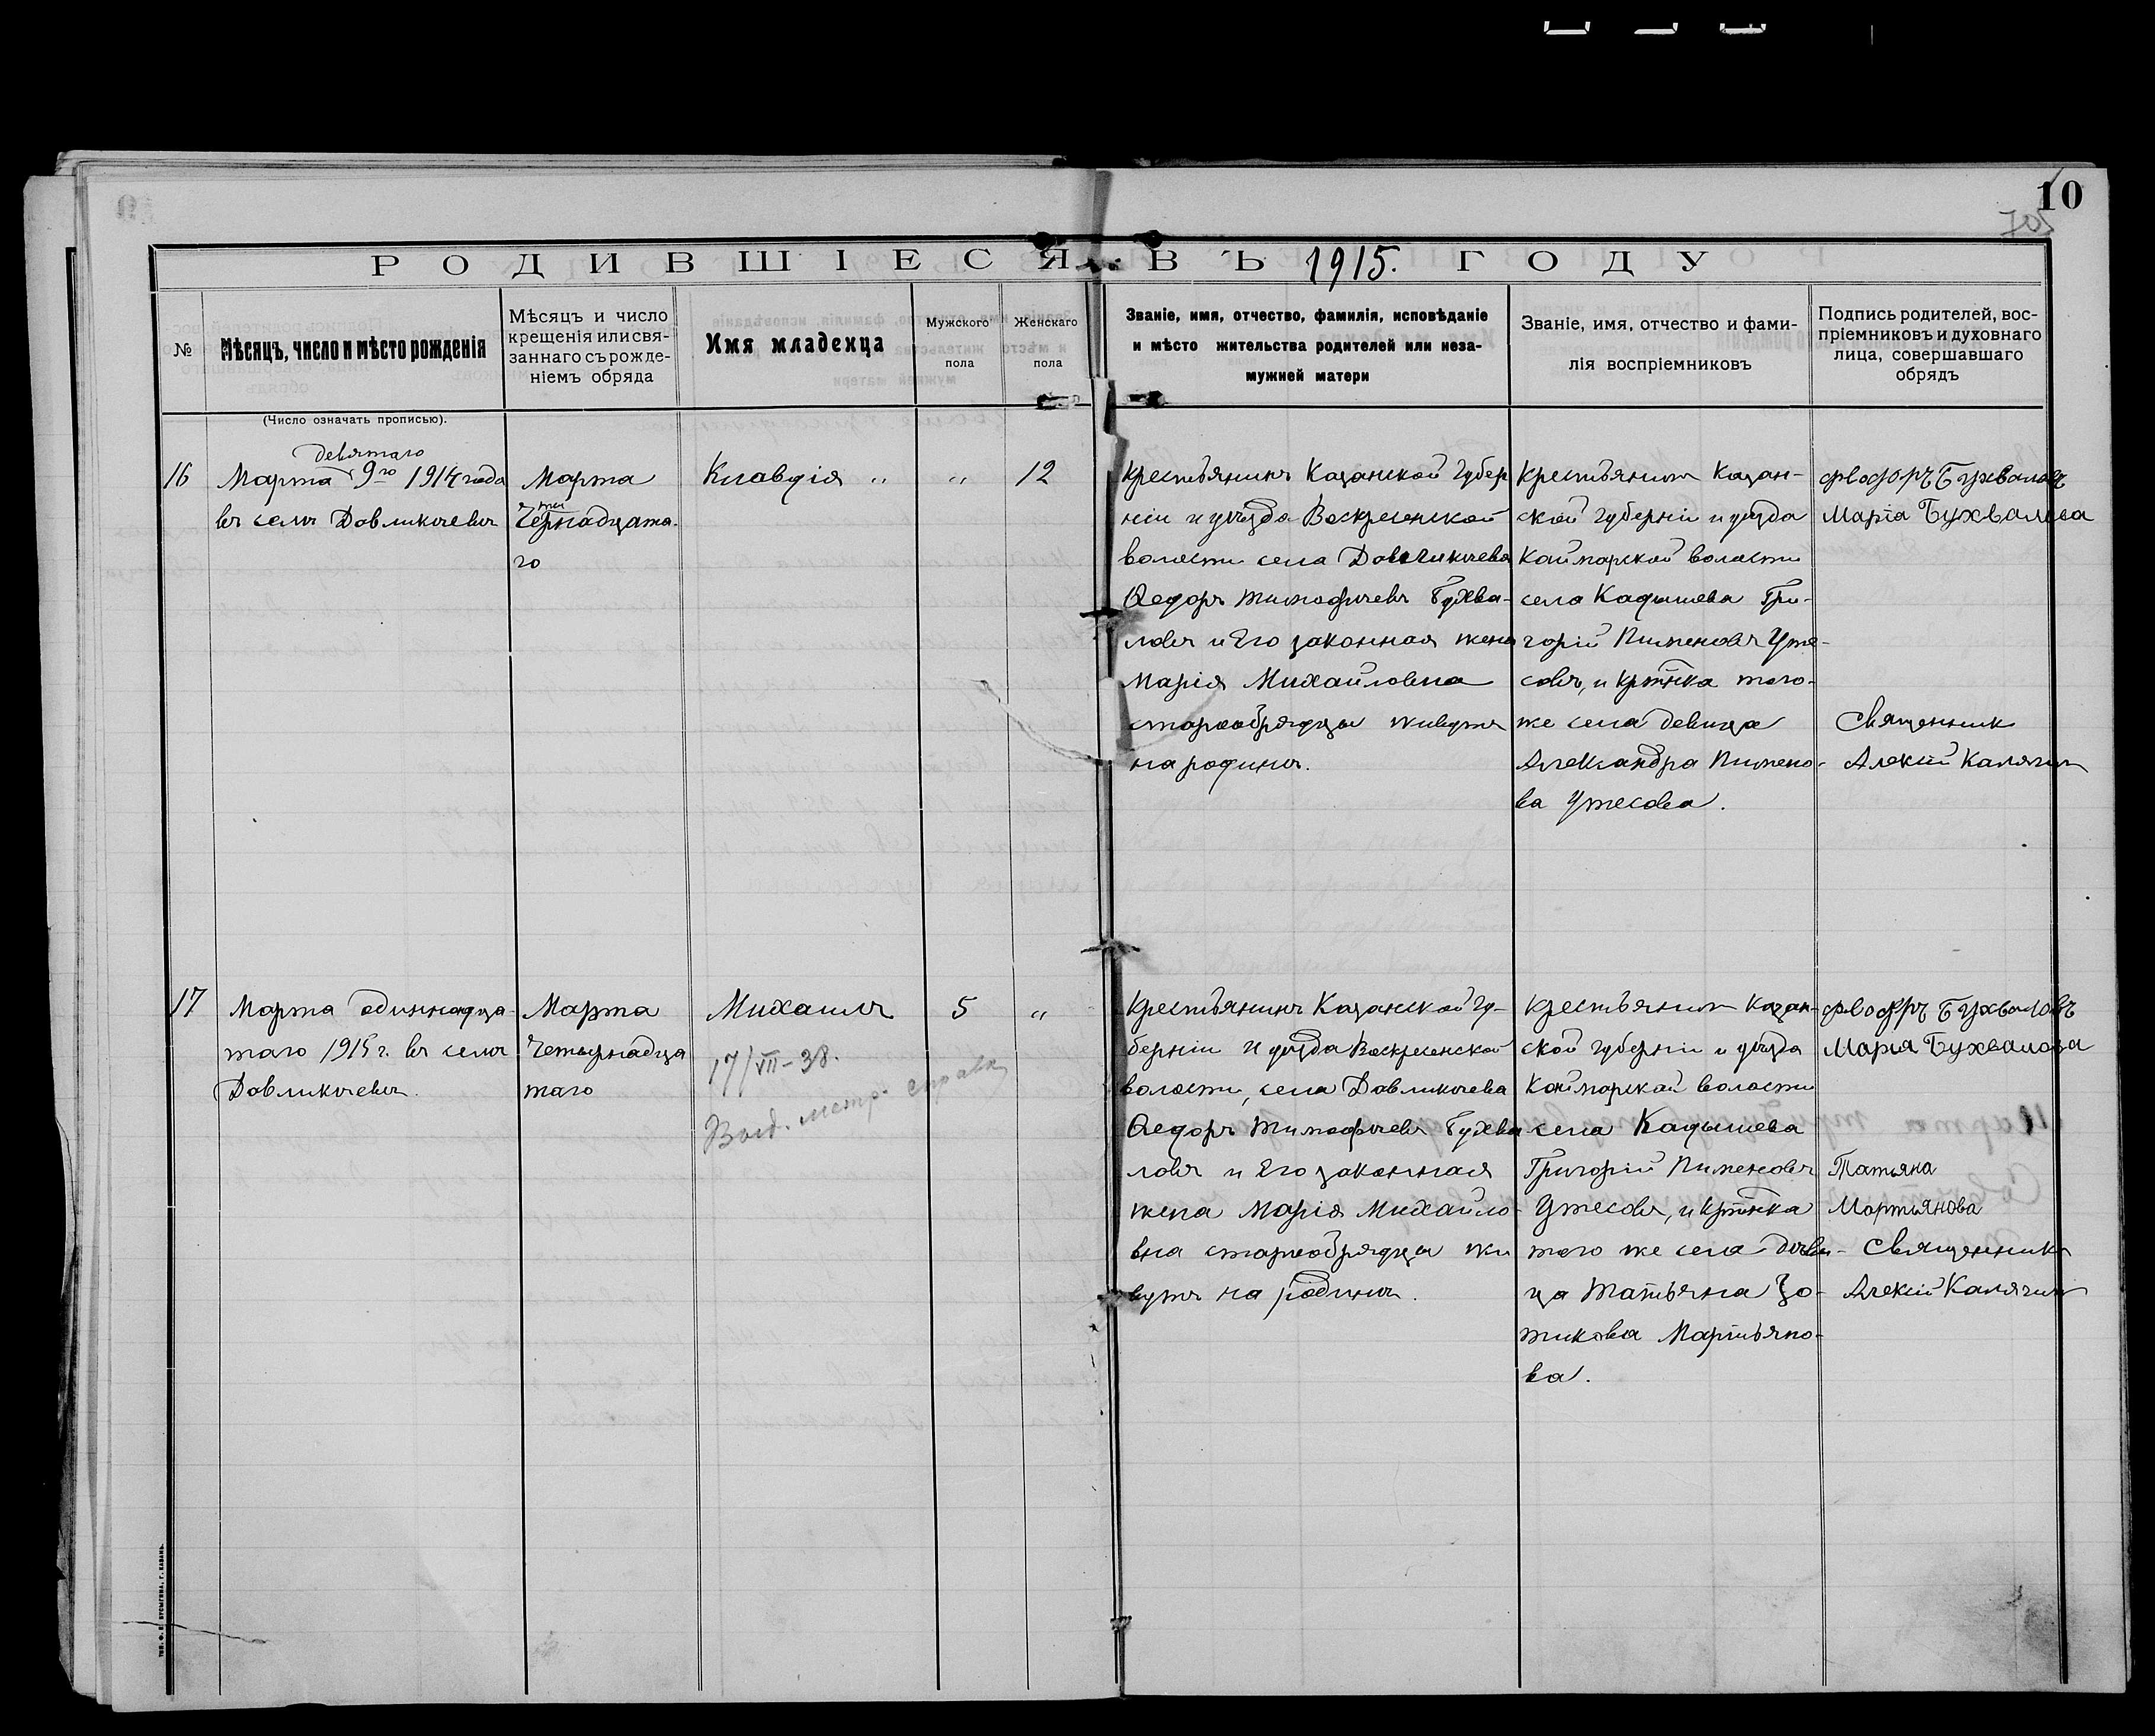 10
705
РОДИВШІЕСЯ ВЪ 1915. ГОДУ
№
Мѣсяцъ, число и мѣсто рожденія
Мѣсяцъ и число
крещенія или свя-
заннаго съ рожде-
ніемъ обряда
Имя младенца
Мужского
пола
Женскаго
пола
Званіе, имя, отчество, фамилія, исповѣданіе
и мѣсто жительства родителей или неза-
мужней матери
Званіе, имя, отчество и фами-
лія воспріемниковъ
Подпись родителей, вос-
пріемниковъ и духовнаго
лица, совершавшаго
обрядъ
(Число означать прописью).
16
девятаго
Марта 9го 1914 года
въ селѣ Довликѣевѣ
Марта
Четырнадцата-
го
Клавдія "
"
12
Крестьянинъ Казанской Губер
ніи и уѣзда Воскресенской
волости села Довликѣева
Ѳедоръ Тимофѣевъ Бухва-
ловъ и Его законная жена
Марія Михайловна
старообрядцы живутъ
на родинѣ.
Крестьянинъ Казан-
ской губерніи и уѣзда
Каймарской волости
села Кадышева Гри-
горій Пименовъ Уте-
совъ, и кртнка того-
же села девица
Александра Пимено-
ва Утесова.
Ѳеодоръ Бухваловъ
Марія Бухвалова
Священникъ
Алексій Калягинъ
17
Марта одиннадца-
таго 1915 г. въ селѣ
Довликѣевѣ.
Марта
Четырнадца
таго
Михаилъ
17/VII-38.
Выд. метр. справк
5
"
Крестьянинъ Казанской Гу-
берніи и уѣзда Воскресенской
волости, села Довликѣева
Ѳедоръ Тимофѣевъ Бухва
ловъ и Его законная
жена Марія Михайло-
вна старообрядцы жи
вутъ на родинѣ.
Крестьянинъ Казан-
ской губерніи и уѣзда
Каймарской волости
села Кадышева
Григорій Пименовъ
Утесовъ, и кртнка
того же села дѣви-
ца Татьяна Зо-
тикова Мартьяно-
ва.
Ѳеодоръ Бухваловъ
Марія Бухвалова
Татьяна
Мартьянова
Священникъ
Алексій Калягинъ